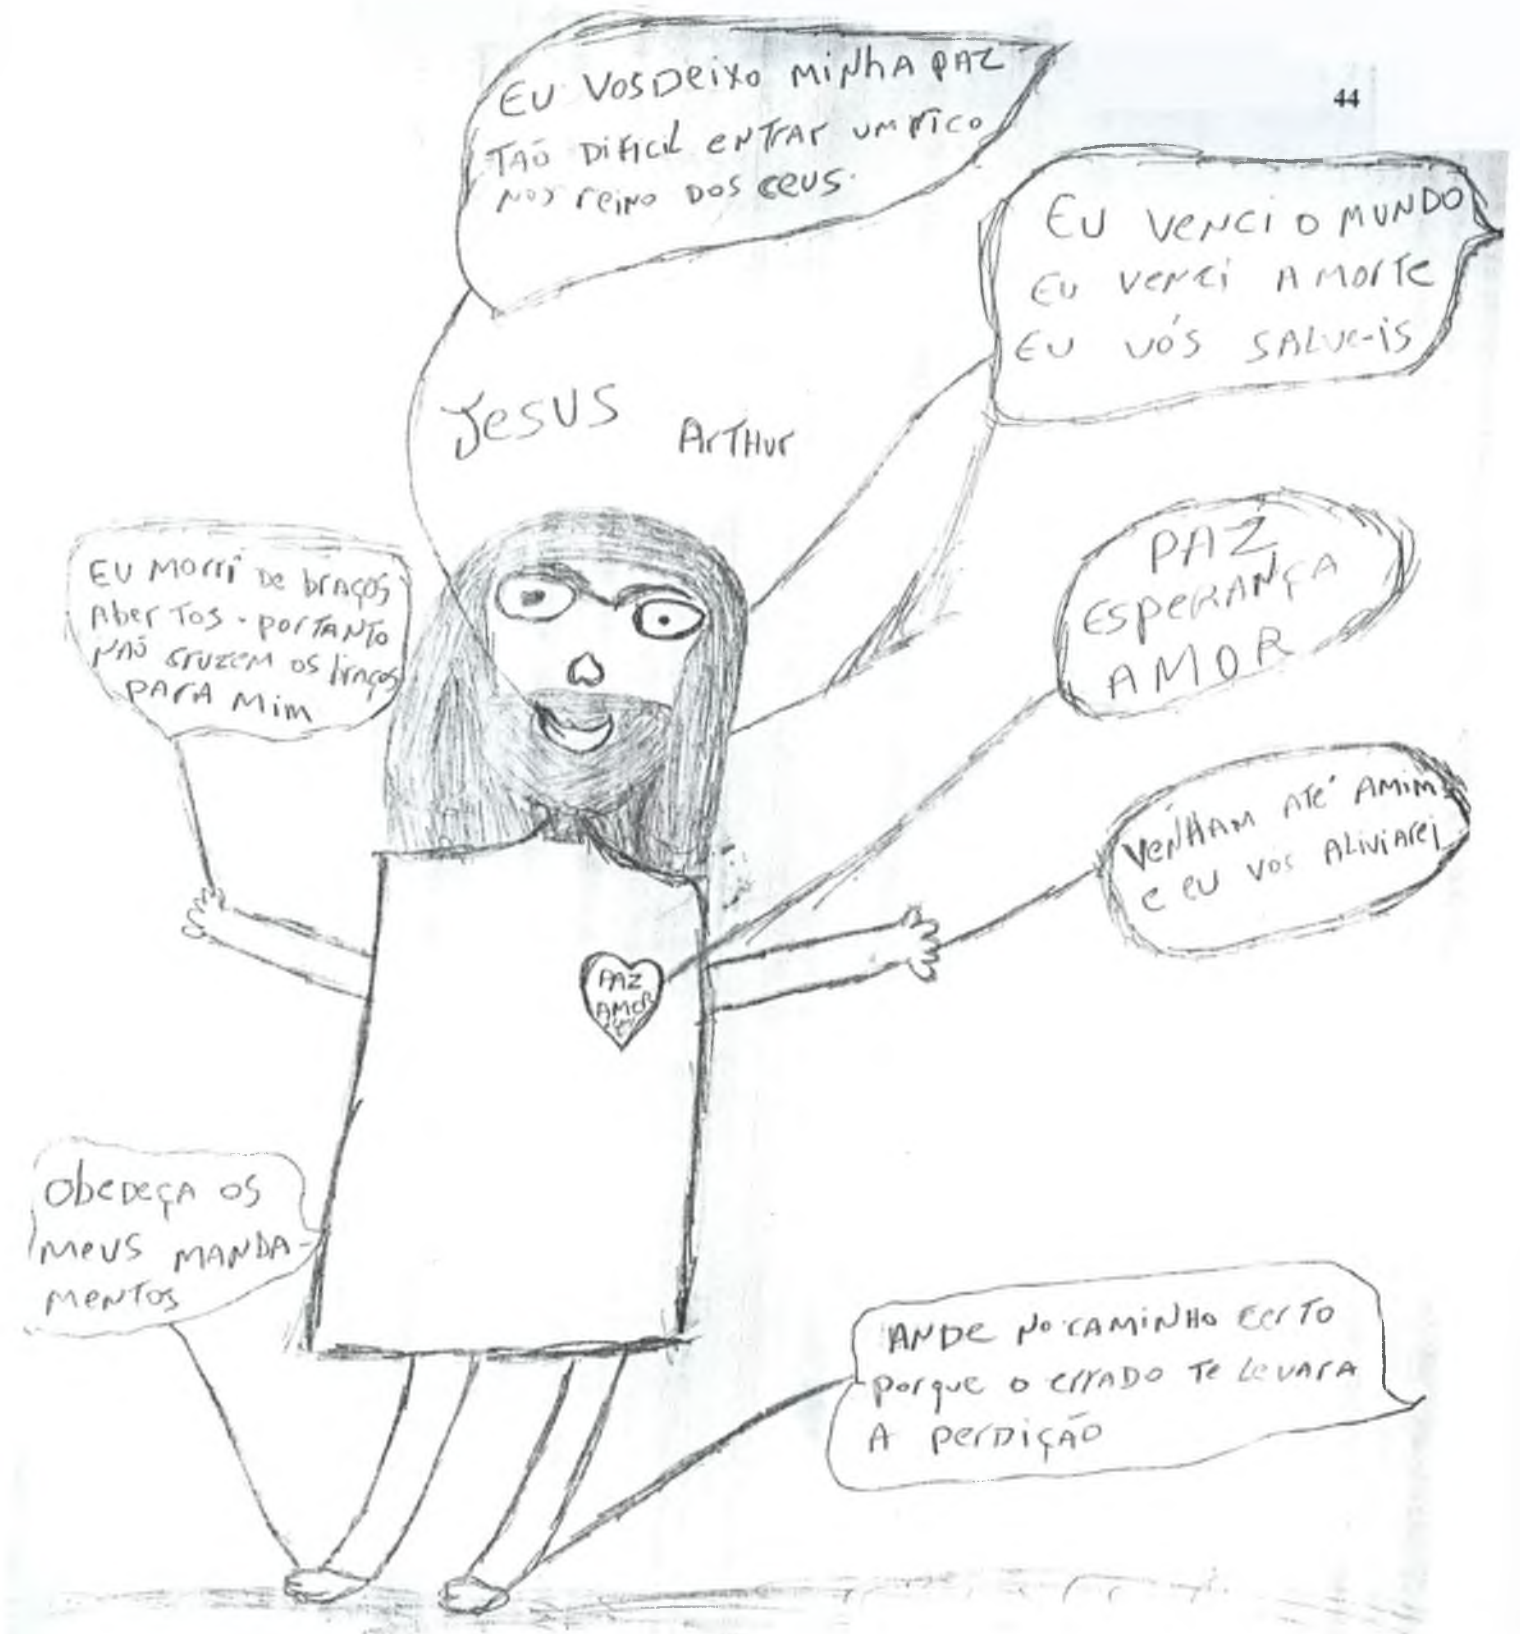 44
EU VOS DEIXO MINHA PAZ
TAÕ DIFICIL ENTRAR UM RICO
NOS REINO DOS CEUS.
EU VENCI O MUNDO
EU VENCI A MORTE
EU VÓS SALVE-IS
JESUS ARTHUR
EU MORRI DE BRAÇOS
ABERTOS - PORTANTO
NÃO CRUZEM OS BRAÇOS
PARA MIM
PAZ
ESPERANÇA
AMOR
VENHAM ATÉ AMIM
E EU VOS ALIVIAREI
PAZ
AMOR
OBEDEÇA OS
MEUS MANDA-
MENTOS
ANDE NO CAMINHO CERTO
PORQUE O ERRADO TE LEVARA
A PERDIÇÃO